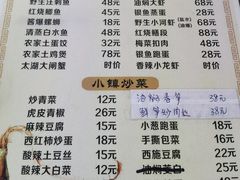 野生汪刺鱼 48元 油焖大虾 68元
红烧鲫鱼 32元 银鱼蒸蛋 28元
酱爆螺蛳 18元 野生小河虾 68元
清蒸白水鱼 48元 红烧鳝段 88元
农家土豆丝 32元 梅菜扣肉 48元
农家土鸡煲 78元 银鱼炒蛋 48元
太湖大闸蟹 时价 香辣小龙虾 时价
小镇炒菜
炒青菜 12元 油焖春笋 38元
虎皮青椒 26元 鲜笋炒肉丝 38元
麻辣豆腐 18元 小葱跑蛋 18元
西红柿炒蛋 18元 手撕包菜 16元
酸辣土豆丝 12元 西施豆腐 22元
酸辣大白菜 12元